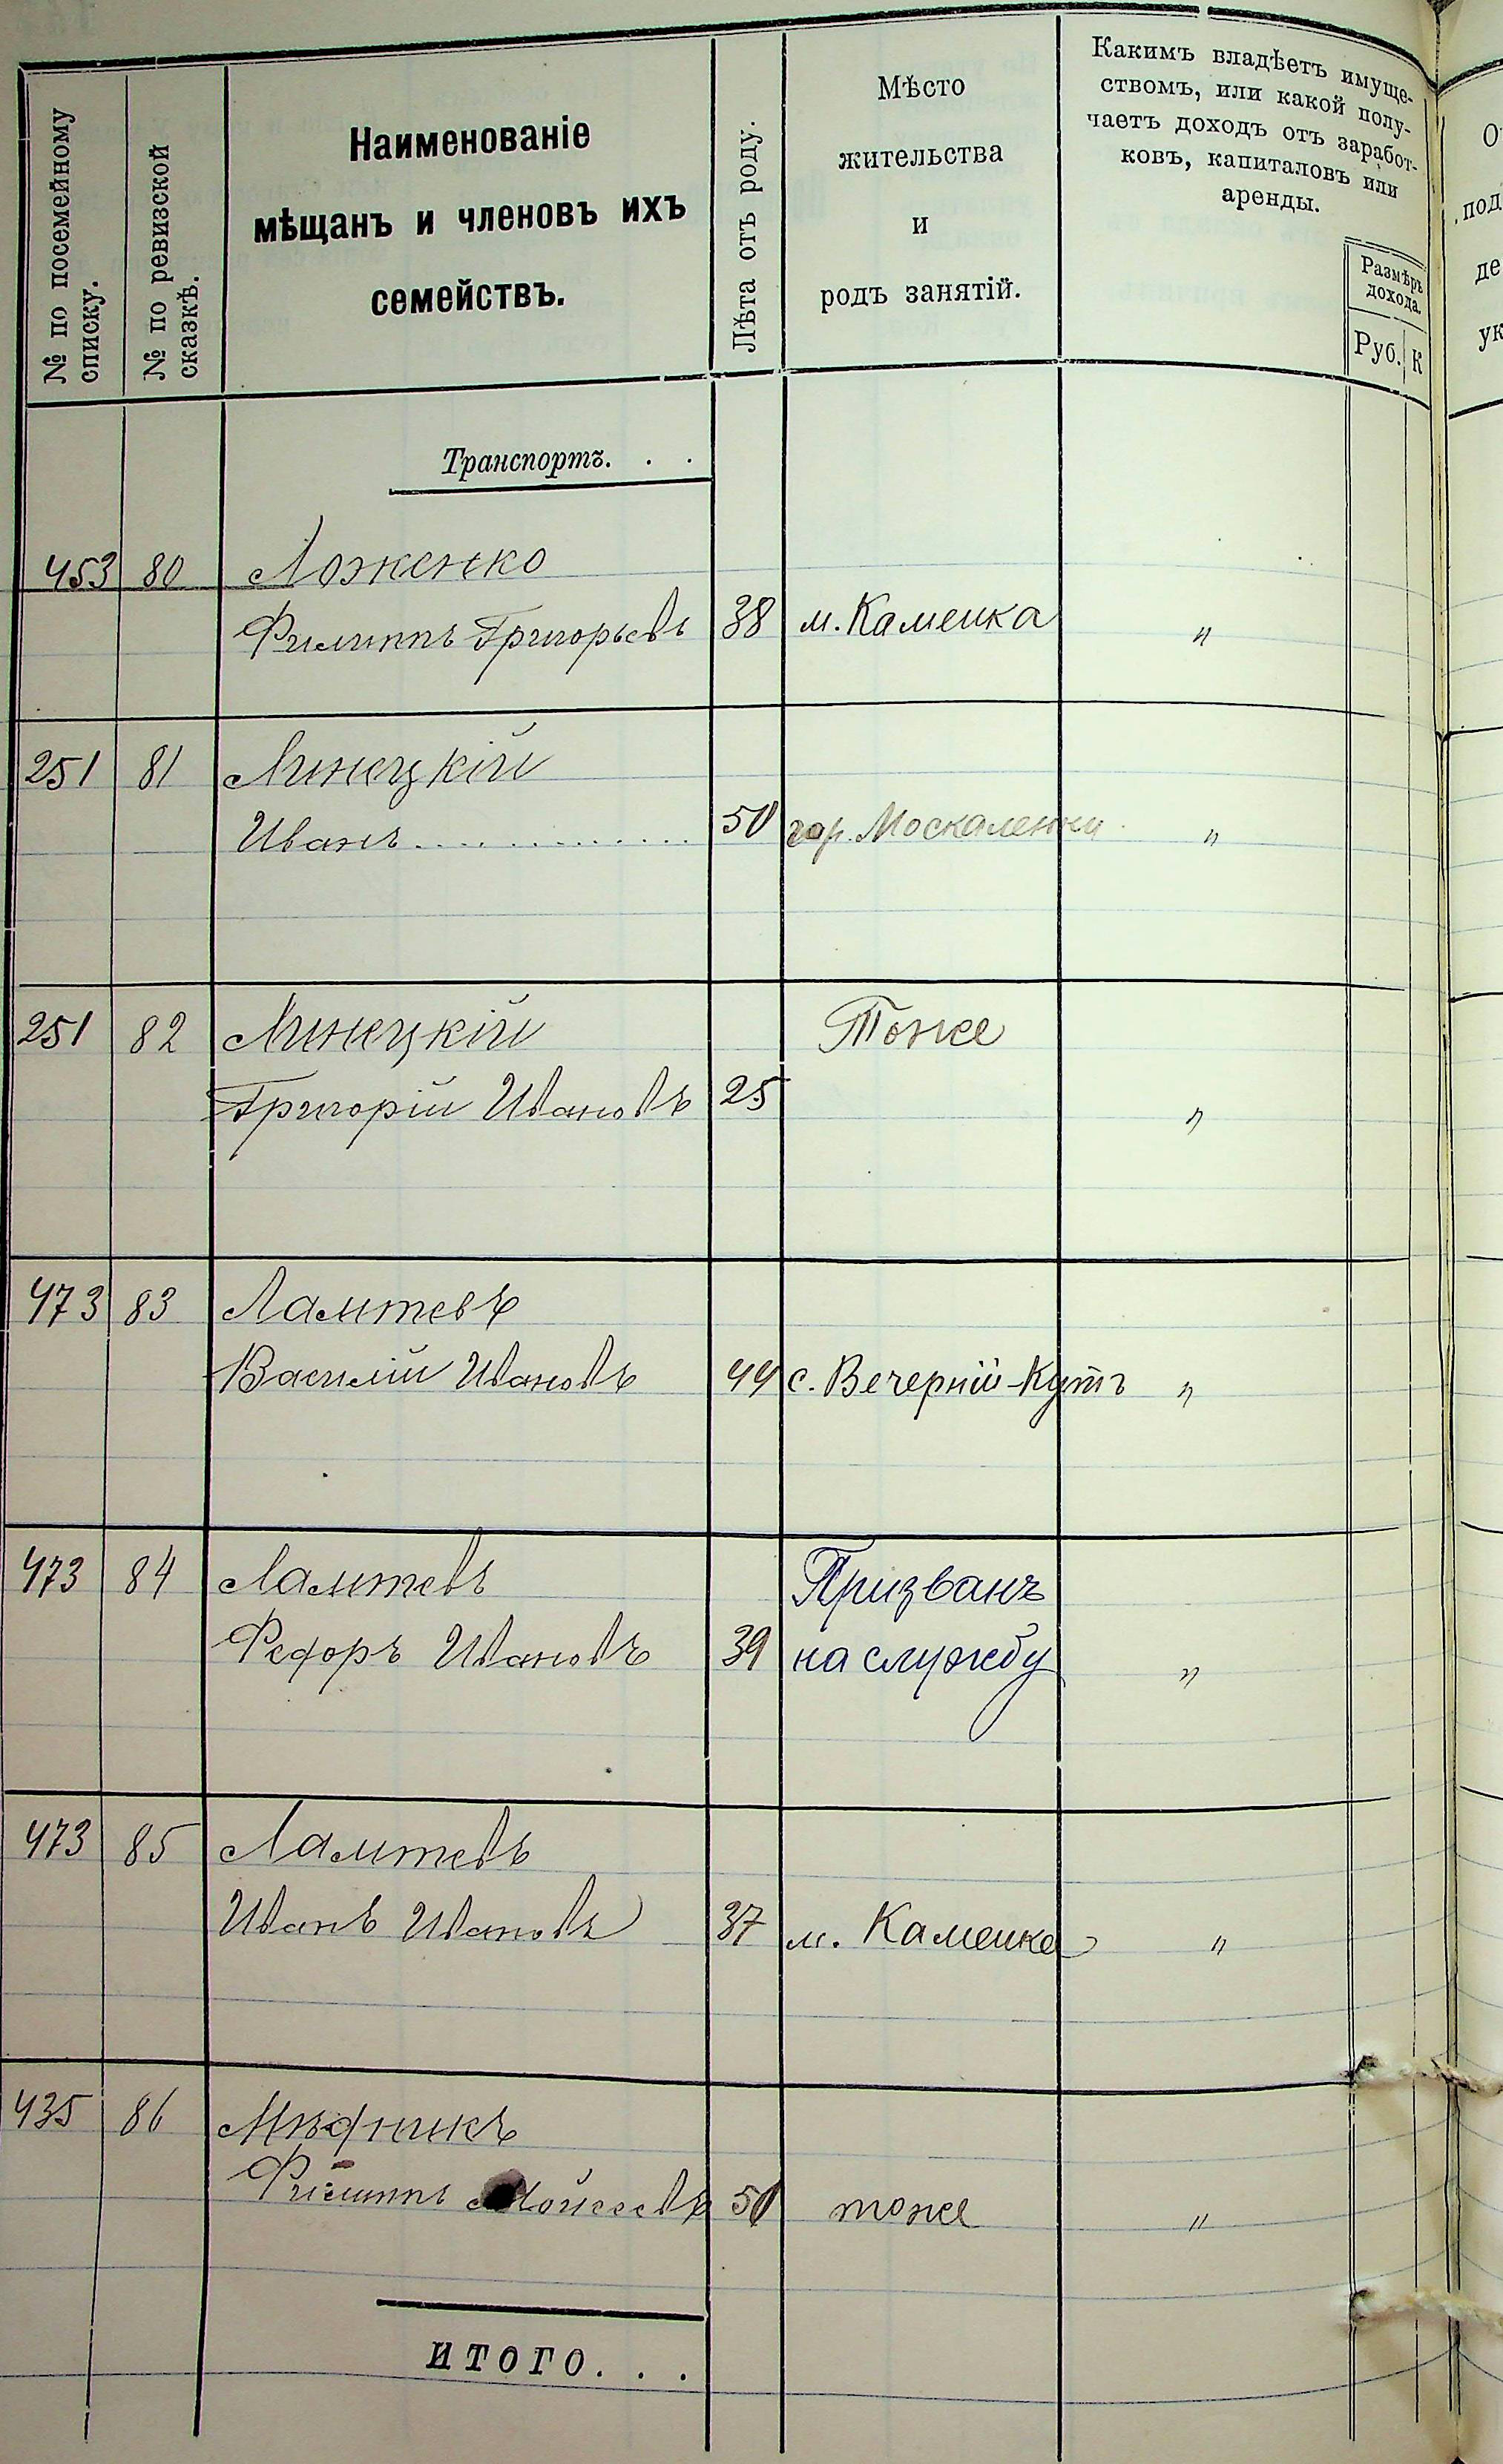 № по посемейному
списку.
№ по ревизской
сказкѣ.
Наименованіе
мѣщанъ и членовъ ихъ
семействъ.
Лѣта отъ роду.
Мѣсто
жительства
и
родъ занятій.
Какимъ владѣетъ имуще-
ствомъ, или какой полу-
чаетъ доходъ отъ заработ-
ковъ, капиталовъ или
аренды.
Размѣръ
дохода.
Руб. К
Транспортъ. . .
453 80 Ложенко
Филиппъ Григорьевъ 38 м. Каменка "
251 81 Линецкій
Иванъ.............. 50 гор. Москаленки "
251 82 Линецкій Тоже
Григорій Ивановъ 25 "
473 83 Лаптевъ
Василій Ивановъ 44 с. Вечерній-Кутъ "
473 84 Лаптевъ Призванъ
Федоръ Ивановъ 39 на службу "
473 85 Лаптевъ
Иванъ Ивановъ 37 м. Каменка "
435 86 Мѣдникъ
Филиппъ Мойсеевъ 50 тоже "
ИТОГО. . .